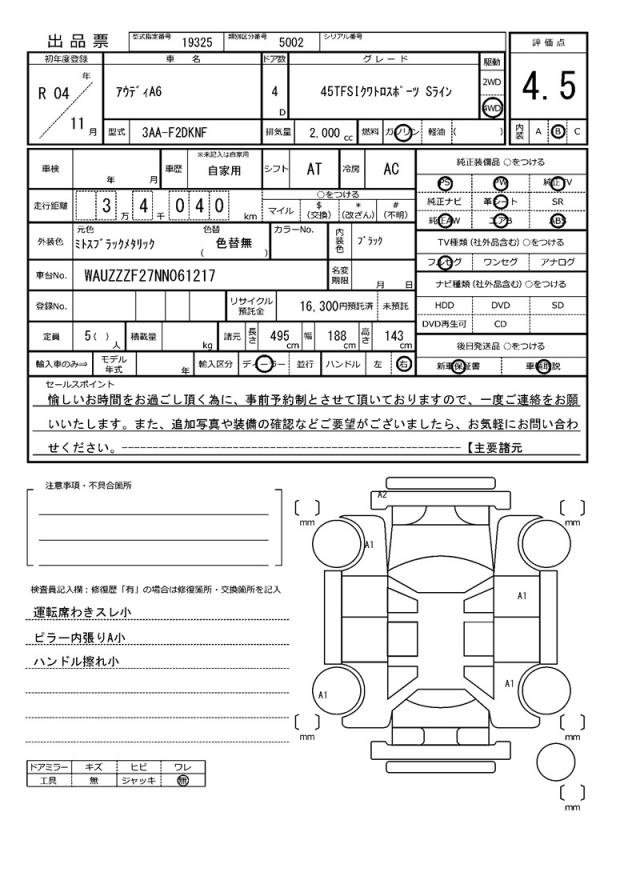 出品票 型式指定番号 19325 類別区分番号 5002 シリアル番号
初年度登録 車名 ドア数 グレード 駆動 評価点
R 04 年 11 月 アウディA6 4 D 45TFSIクワトロスポーツ Sライン 2WD 4WD 4.5
型式 3AA-F2DKNF 排気量 2,000 cc 燃料 ガソリン 軽油 ( ) 内装 A B C
車検 年 月 車歴 ※未記入は自家用 自家用 シフト AT 冷房 AC
純正装備品 ○をつける
PS PW 純正TV
純正ナビ 革シート SR
純正AW エアB ABS
走行距離 3 万 4 千 0 4 0 km
○をつける
マイル $ (交換) * (改ざん) # (不明)
外装色 元色 ミトスブラックメタリック 色替 色替無 ( ) カラーNo. 内装色 ブラック
TV種類 (社外品含む) ○をつける
フルセグ ワンセグ アナログ
車台No. WAUZZZF27NN061217 名変期限 月 日
ナビ種類 (社外品含む) ○をつける
HDD DVD SD
DVD再生可 CD
登録No. リサイクル預託金 16,300円 預託済 未預託
定員 5 ( ) 人 積載量 kg 諸元 長さ 495 cm 幅 188 cm 高さ 143 cm
後日発送品 ○をつける
新車保証書 車輌取説
輸入車のみ⇒ モデル年式 年 輸入区分 ディーラー 並行 ハンドル 左 右
セールスポイント
愉しいお時間をお過ごし頂く為に、事前予約制とさせて頂いておりますので、一度ご連絡をお願
いいたします。また、追加写真や装備の確認などご要望がございましたら、お気軽にお問い合わ
せください。--------------------------------------------------【主要諸元
注意事項・不具合箇所
検査員記入欄：修復歴「有」の場合は修復箇所・交換箇所を記入
運転席わきスレ小
ピラー内張りA小
ハンドル擦れ小
ドアミラー キズ ヒビ ワレ
工具 無 ジャッキ 無
A2
mm mm
A1
A1
A1 A1
mm mm
mm